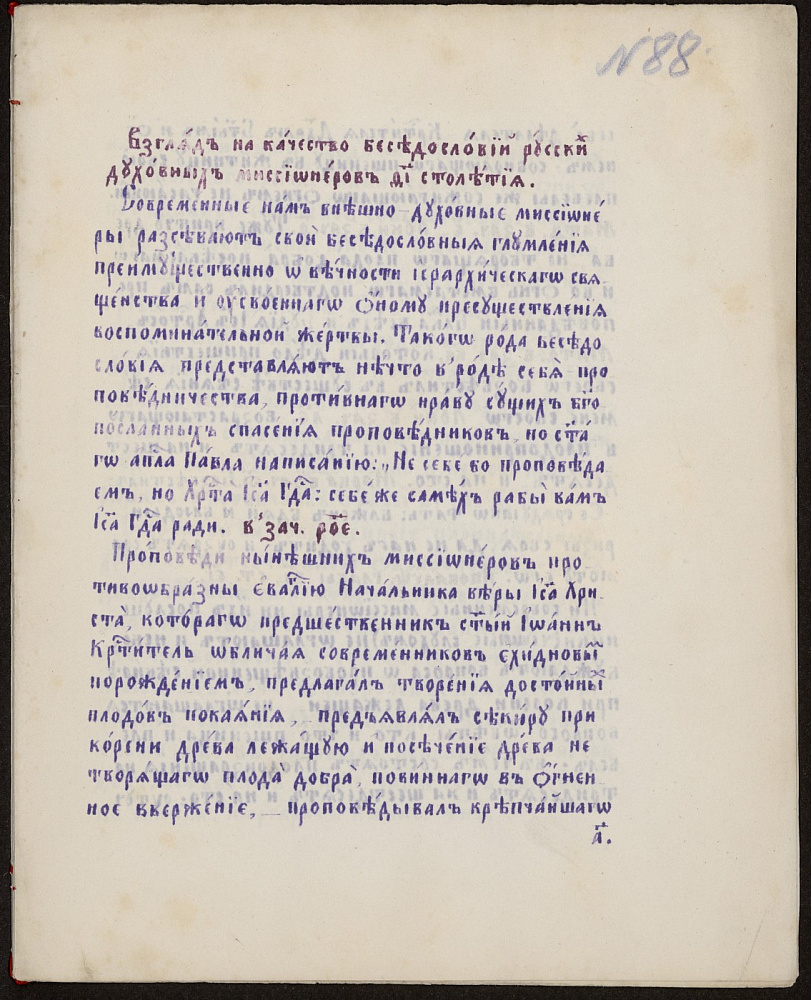 N 88.
Взгля́дъ на ка́чество бесѣдосло́вїй ру́сски
духо́вныхъ миссїѡне́ровъ д҃і столѣ́тїя.
Совреме́нные на́мъ внѣ́шно духо́вные миссїѡне́
ры разсѣва́ютъ своѝ бесѣдосло́вныя глумле́нїя
преиму́щественно ѡ вѣ́чности їерархи́ческагѡ свя
ще́нства и ѹсво́еннагѡ о́ному пресуществле́нїя
воспомина́тельной же́ртвы. Тако́гѡ ро́да бесѣдо
сло́вїя представля́ютъ нѣ́что в' ро́дѣ себя̀ про
повѣ́дничества, проти́внагѡ нра́ву су́щихъ бг҃о
посла́нныхъ спасе́нїя проповѣ́дниковъ, но ст҃а́
гѡ ап҃ла Па́вла написа́нїю: „Не себе бо проповѣ́да
емъ, но Хр҃та̀ І҃са Г҃да: себе́ же самѣ́хъ рабы̀ ва́мъ
І҃са Г҃да ради. в' зач. р҃ое.
Про́повѣди ны́нѣшнихъ миссїѡне́ровъ про
тивоѡбра́зны єва҃лїю Нача́льника вѣ́ры І҃са Хри
ста̀, кото́рагѡ предше́ственникъ ст҃ы́й Іѡа́ннъ
Кр҃ти́тель ѡблича́я совреме́нниковъ єхи́дновы
порожде́нїемъ, предлага́лъ творе́нїя досто́йны
плодо́въ покая́нїя, — предъявля́лъ сѣки́ру при
ко́рени дре́ва лежа́щую и посѣче́нїе дре́ва не
творя́щагѡ плода̀ добра̀, пови́ннагѡ въ о́гнен
ное вверже́нїе, — проповѣ́дывалъ крѣпча́йшагѡ
а҃.